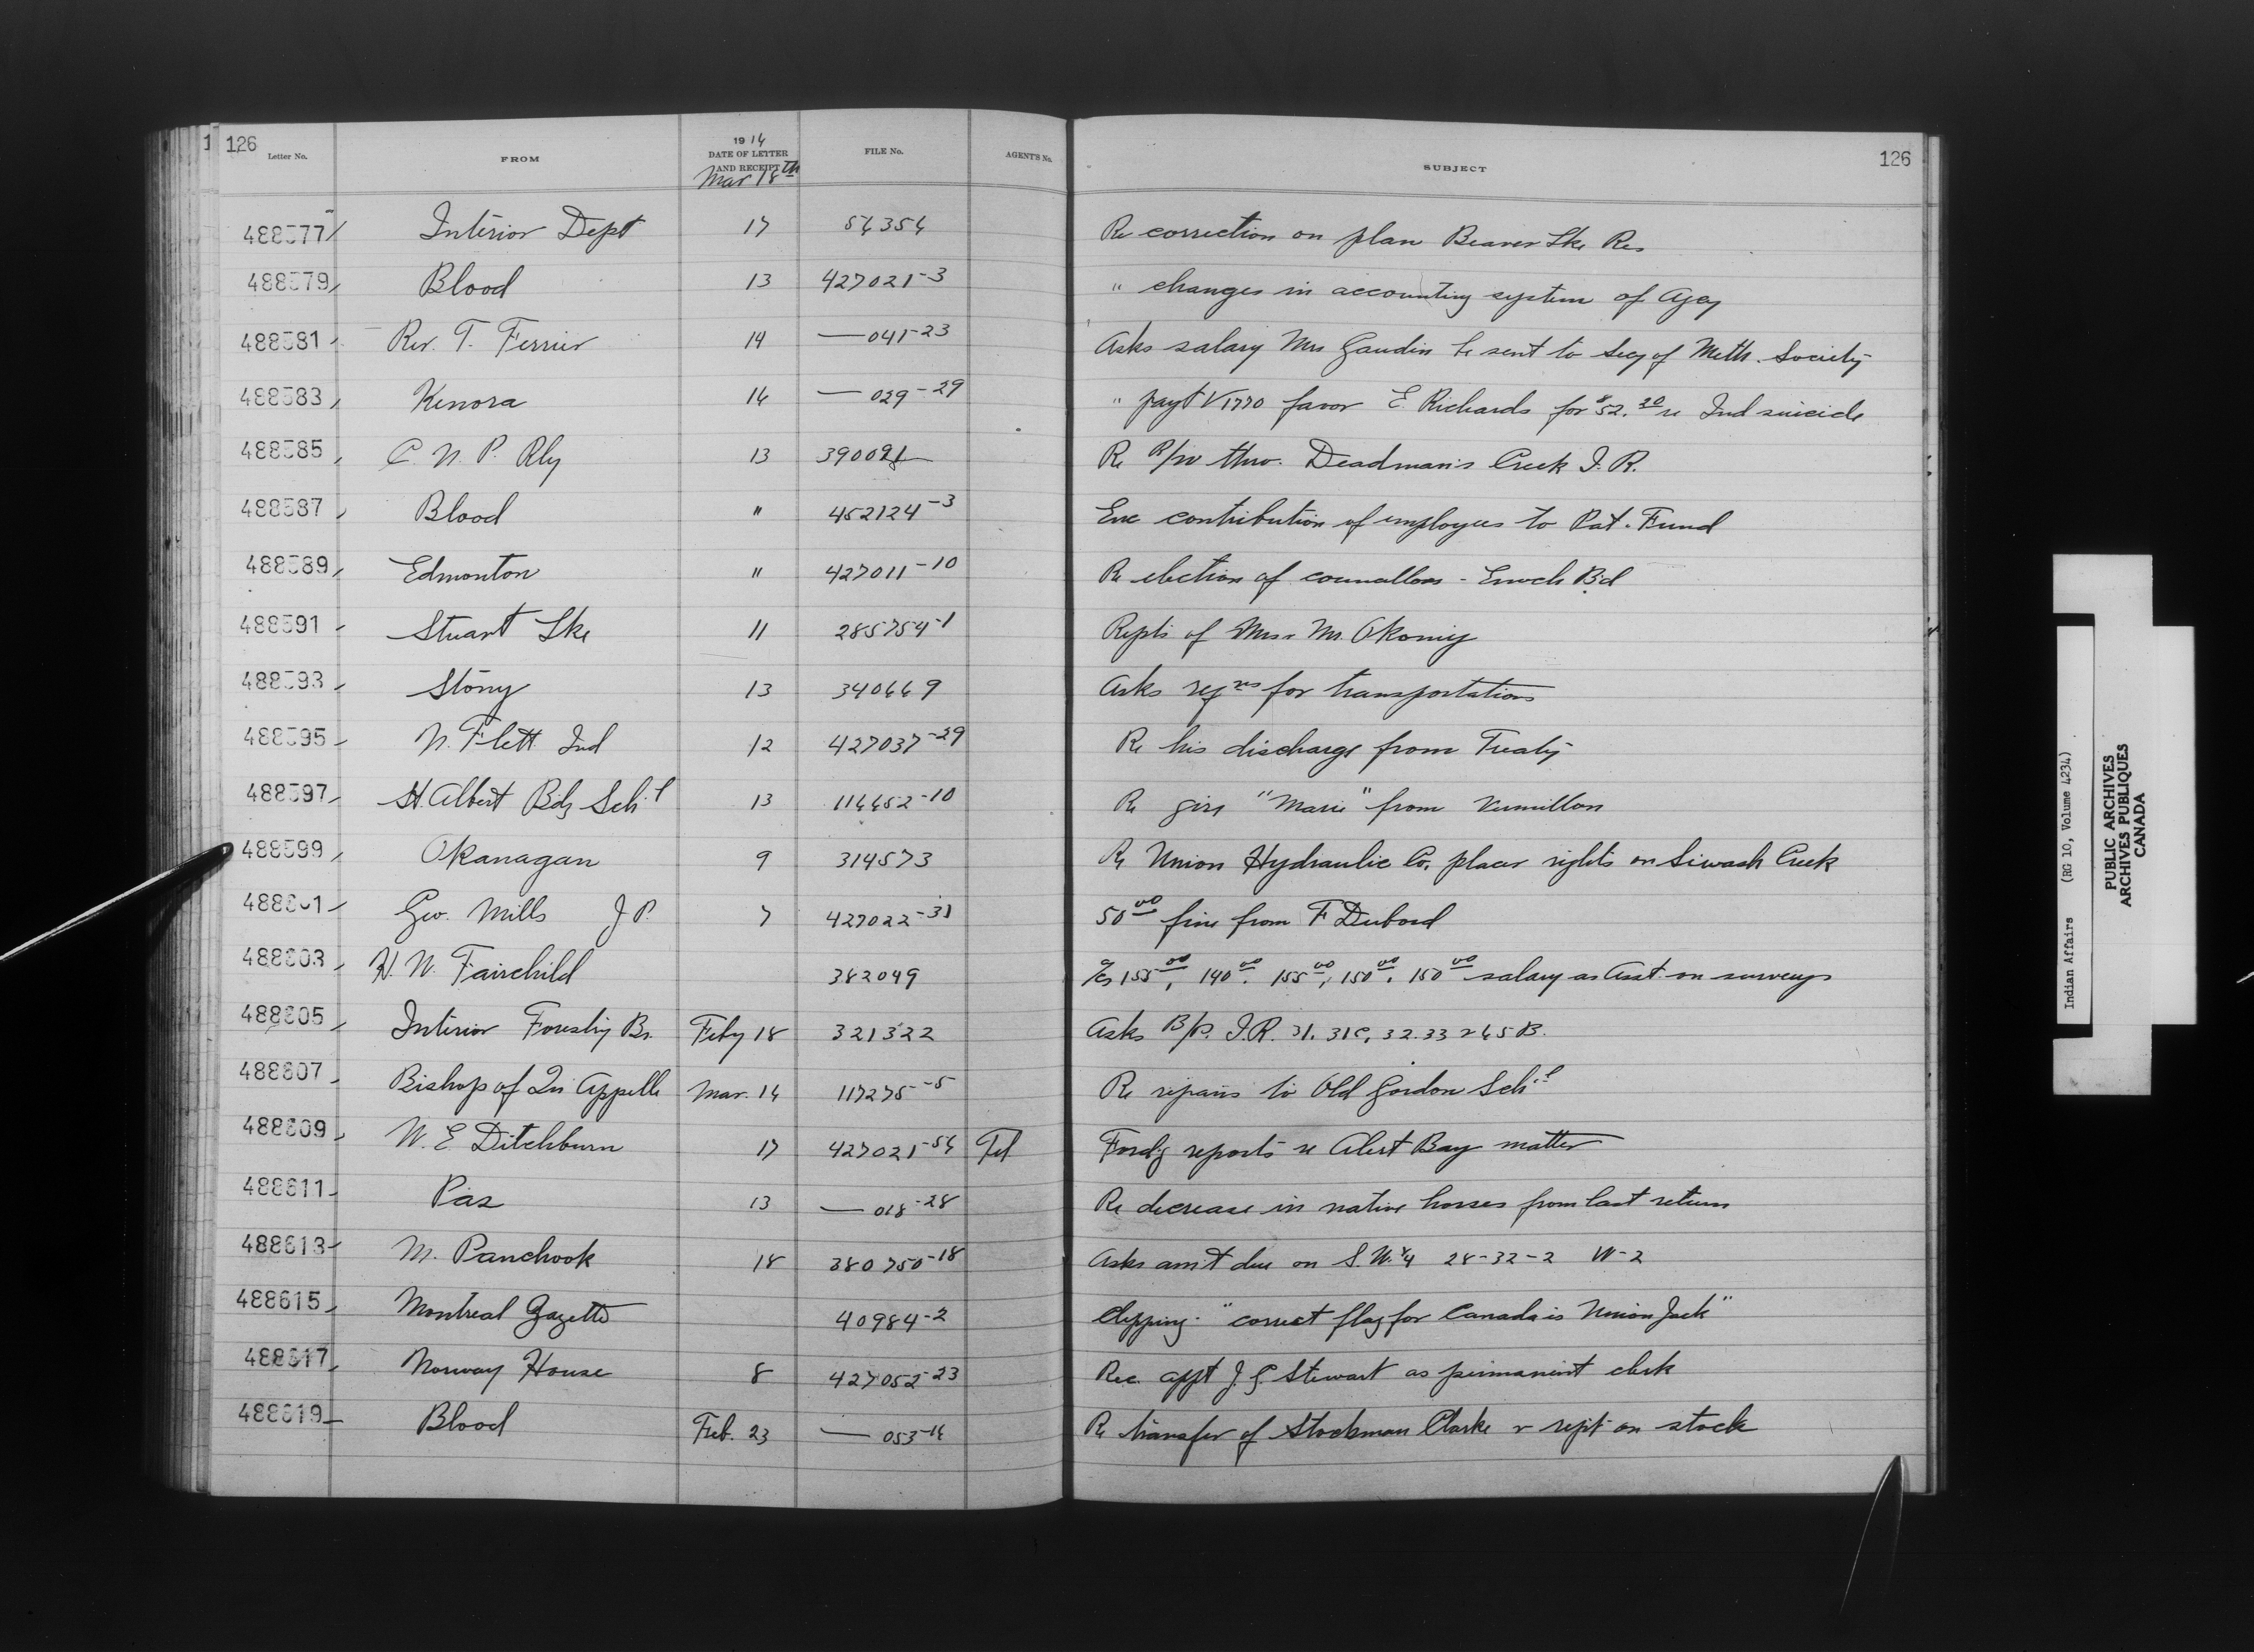 126
Letter No. FROM 1914 DATE OF LETTER AND RECEIPT FILE No. AGENT'S No. SUBJECT 126
Mar 18th
488577 Interior Dept 17 54354 Re correction on plan Beaver Lke Res
488579 Blood 13 427021-3 " changes in accounting system of Agcy
488581 Rev. T. Ferrier 14 — 041-23 Asks salary Mrs Gaudin be sent to Secy of Meth. Society
488583 Kenora 14 — 029-29 " payt V 1770 favor E. Richards for $52.20 re Ind suicide
488585 C. N. P. Rly 13 390091 Re R/W thro. Deadman's Creek I. R.
488587 Blood " 452124-3 Enc contribution of employees to Pat. Fund
488589 Edmonton " 427011-10 Re election of councillors - Enoch Bd
488591 Stuart Lke 11 285754-1 Repts of Mr
488593 Stony 13 340669 Asks reqns for transportations
488595 N. Flett Ind 12 427037-29 Re his discharge from Treaty
488597 St. Albert Bdg Schl 13 114452-10 Re girl "Marie" from Vermillon
488599 Okanagan 9 314573 Re Union Hydraulic Co. placer rights on Siwash Creek
488601 Geo. Mills J P. 7 427022-31 50.00 fine from F Dubord
488603 H. W. Fairchild 382049 a/cs 155.00, 140.00, 155.00, 150.00, 150.00 salary as Asst on surveys
488605 Interior Forestry Br. Feby 18 321322 Asks B/P. I.R. 31. 31C, 32. 33 & 45 B.
488607 Bishop of Qu Appelle Mar. 14 117275-5 Re repairs to Old Gordon Schl
488609 W. E Ditchburn 17 427021-54 Tel Fordg reports re Alert Bay matter
488611 Pas 13 — 018-28 Re decrease in native horses from last return
488613 M. Panchook 18 380750-18 Asks am't due on S.W. 1/4 28-32-2 W-2
488615 Montreal Gazette 40984-2 Clipping "correct flag for Canada is Union Jack"
488617 Norway House 8 427052-23 Rec. appt J. G. Stewart as permanent clerk
488619 Blood Feb. 23 — 053-14 Re transfer of Stockman Clarke & rept on stock
Indian Affairs (RG 10, Volume 4234)
PUBLIC ARCHIVES
ARCHIVES PUBLIQUES
CANADA